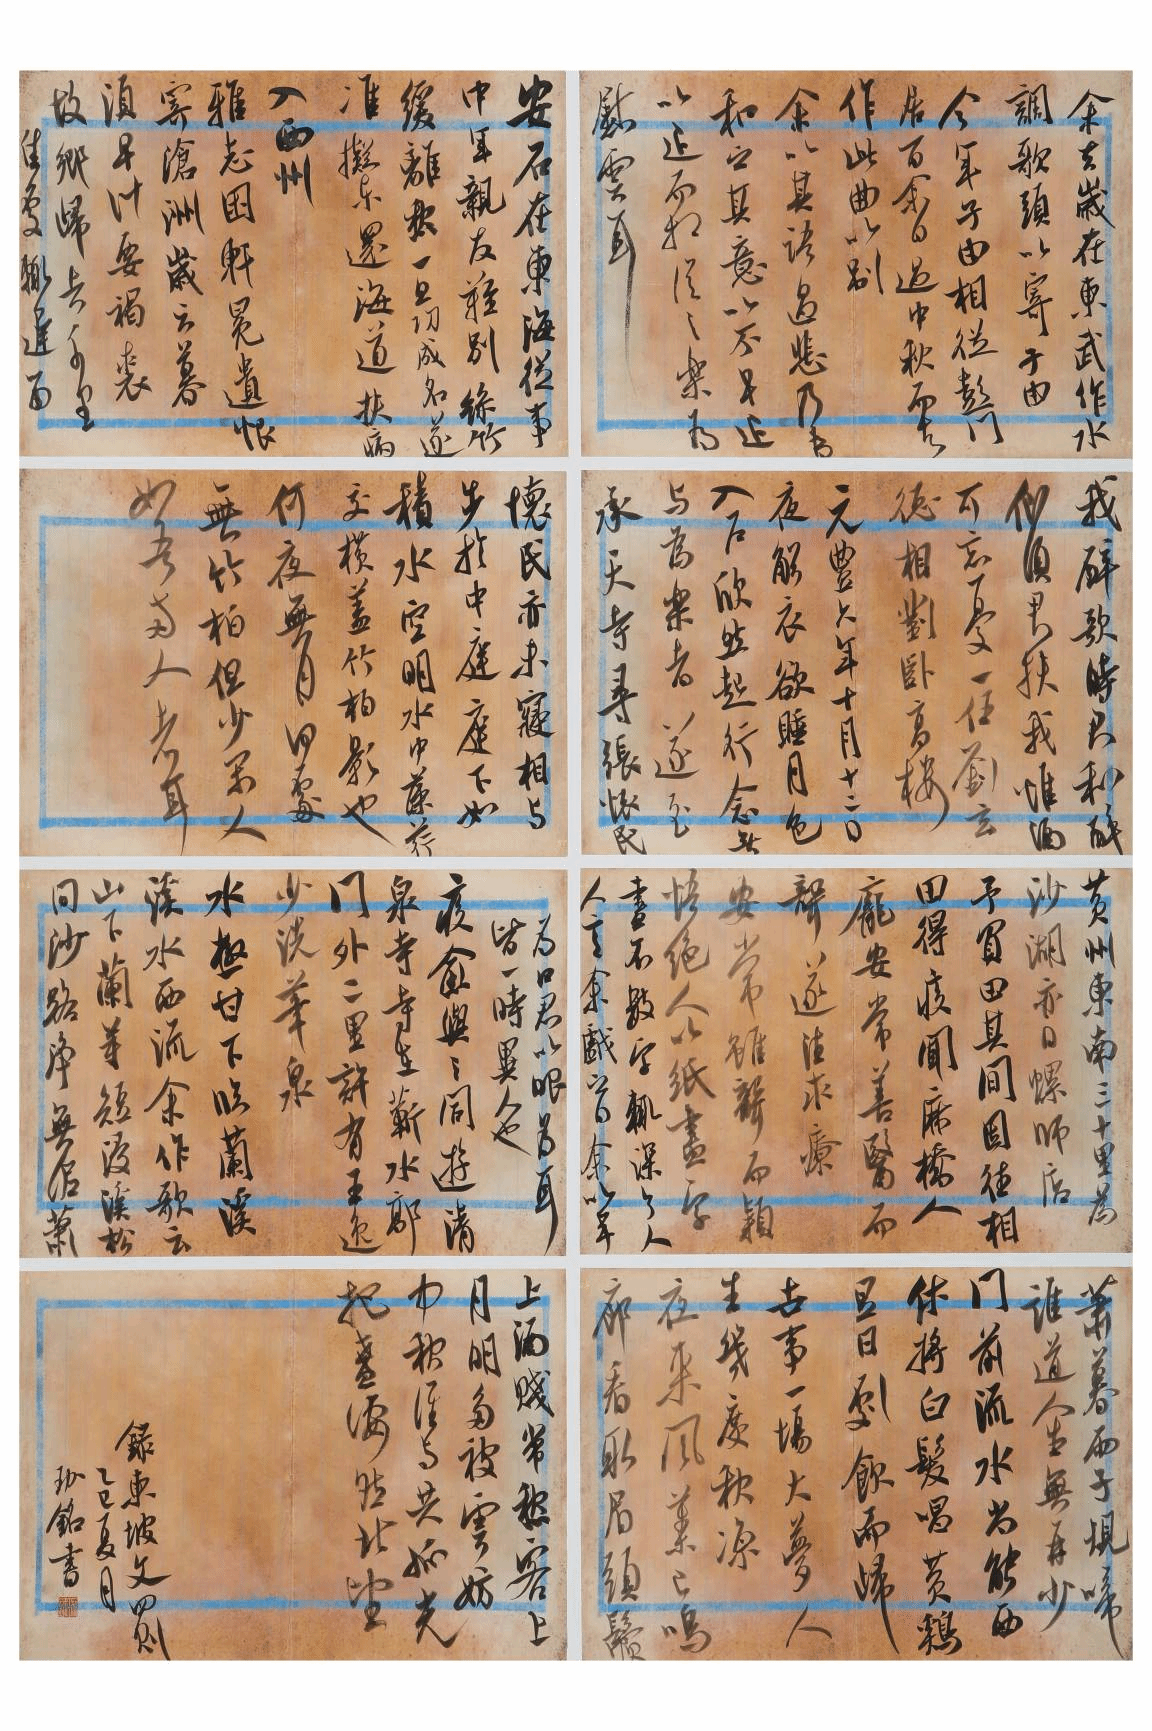 余去歲在東武作水
調歌頭以寄子由
今年子由相從彭門
居百余日過中秋而去
作此曲以別
余以其語過悲乃為
和之其意以不早退
以退而相從之樂為
慰云耳
安石在東海從事
中年親友難別絲竹
緩離愁一旦功成名遂
準擬東還海道扶病
入西州
雅志困軒冕遺恨
寄滄洲歲云暮
須早計要褐裘
故鄉歸去千里
佳處輒遲留
我醉歌時君和醉
倒須君扶我惟酒
可忘憂一任劉玄
德相對臥高樓
元豐六年十月十二日
夜解衣欲睡月色
入戶欣然起行念無
與為樂者遂至
承天寺尋張懷民
懷民亦未寢相與
步於中庭庭下如
積水空明水中藻荇
交橫蓋竹柏影也
何夜無月何處
無竹柏但少閑人
如吾兩人者耳
黃州東南三十里為
沙湖亦曰螺師店
予買田其間因往相
田得疾聞麻橋人
龐安常善醫而
聾遂往求療
安常雖聾而穎
悟絕人以紙畫字
書不數字輒深了人
人意余戲之曰余以手
為口君以眼為耳
皆一時異人也
疾愈與之同遊清
泉寺寺在蘄水郭
門外二里許有王逸
少洗筆泉
水極甘下臨蘭溪
溪水西流余作歌云
山下蘭芽短浸溪松
間沙路淨無泥蕭
蕭暮雨子規啼
誰道人生無再少
門前流水尚能西
休將白髮唱黃鷄
是日劇飲而歸
世事一場大夢人
生幾度秋涼
夜來風葉已鳴
廊看取眉頭鬢
上酒賤常愁客少
月明多被雲妨
中秋誰與共孤光
把盞淒然北望
錄東坡文四則
乙巳夏月
珈銘書